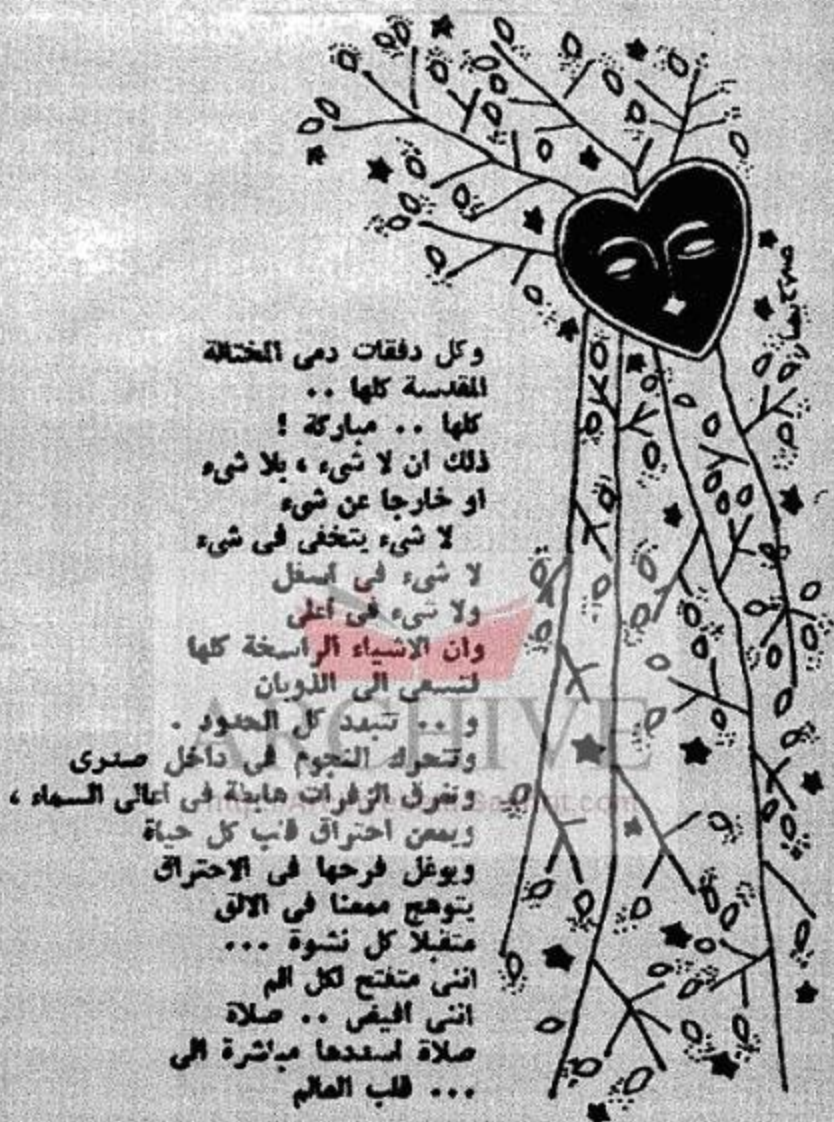 وكل دفقات دمى المختالة
المقدسة كلها ..
كلها .. مباركة !
ذلك ان لا شىء ، بلا شىء
او خارجا عن شىء
لا شىء يتخفى فى شىء
لا شىء فى أسفل
ولا شىء فى أعلى
وان الاشياء الراسخة كلها
لتسعى الى الذوبان
و .. تتبدد كل الحدود .
وتتحرك النجوم فى داخل صدرى
وتغرق الزفرات هابطة فى أعالى السماء ،
ويمعن احتراق قلب كل حياة
ويوغل فرحها فى الاحتراق
يتوهج ممعنا فى الالق
متقبلا كل نشوة ...
اننى متفتح لكل الم
اننى أفيض .. صلاة
صلاة اسددها مباشرة الى
... قلب العالم
ARCHIVE